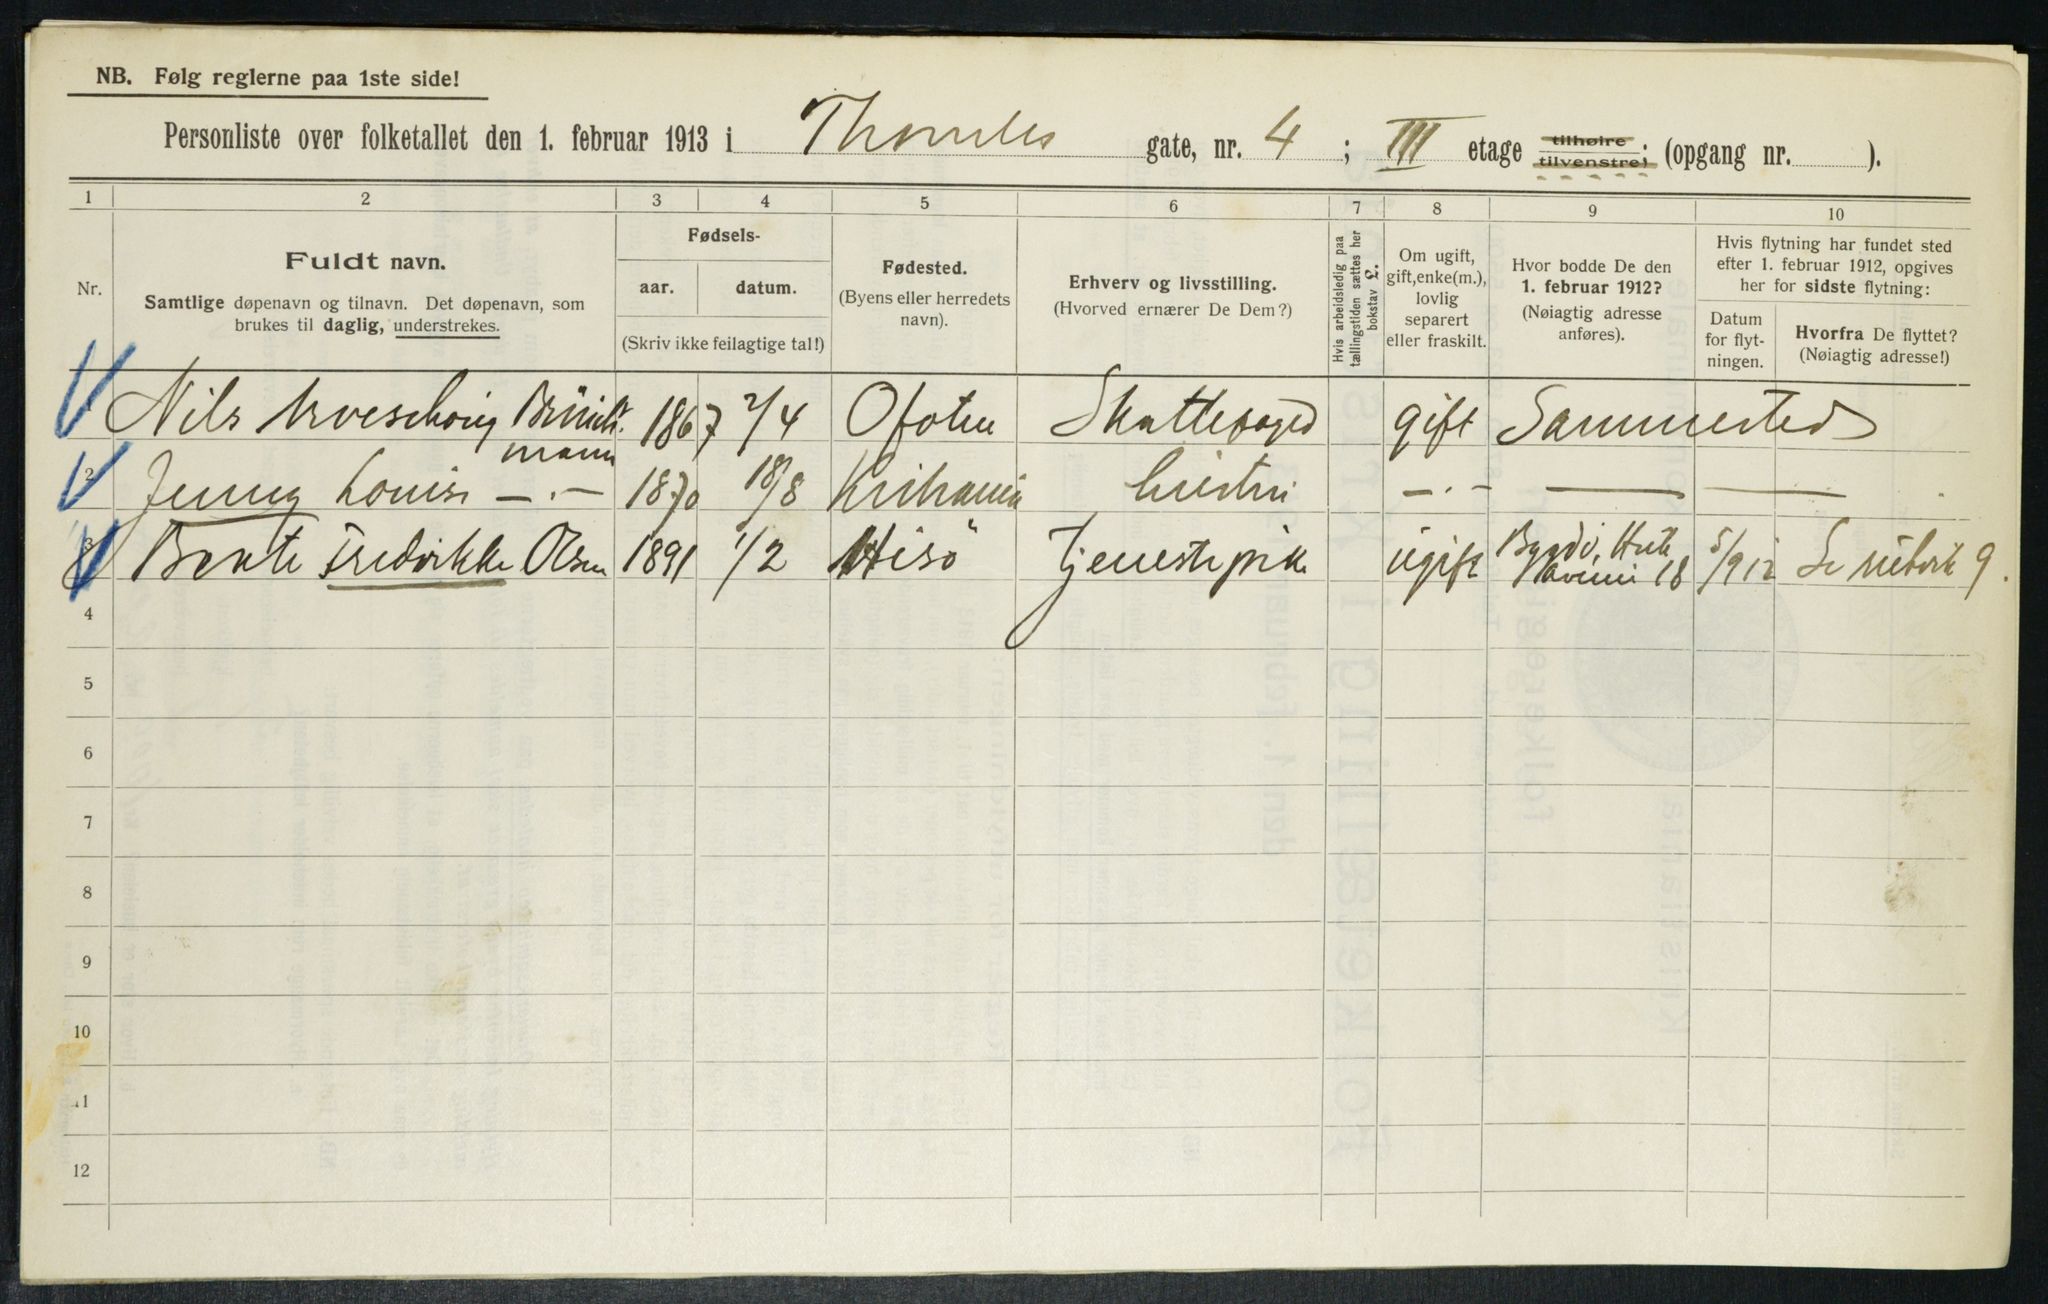 NB. Følg reglerne paa 1ste side!
Personliste over folketallet den 1. februar 1913 i Thomles gate, nr. 4 ; III etage tilhøire tilvenstre; (opgang nr. ).
1 2 3 4 5 6 7 8 9 10
Nr.
Fuldt navn.
Samtlige døpenavn og tilnavn. Det døpenavn, som
brukes til daglig, understrekes.
Fødsels-
aar. datum.
(Skriv ikke feilagtige tal!)
Fødested.
(Byens eller herredets
navn).
Erhverv og livsstilling.
(Hvorved ernærer De Dem?)
Hvis arbeidsledig paa
tællingstiden sættes her
bokstav £.
Om ugift,
gift, enke(m.),
lovlig
separert
eller fraskilt.
Hvor bodde De den
1. februar 1912?
(Nøiagtig adresse
anføres).
Hvis flytning har fundet sted
efter 1. februar 1912, opgives
her for sidste flytning:
Datum
for flyt-
ningen.
Hvorfra De flyttet?
(Nøiagtig adresse!)
Nils 1867 2/4 Ofoten Skattefoged gift Sammested
mann
2 Jenny Louise —.— 1870 18/8 Kristiania hustru —.— — —
3 Berte Fredrikke Olsen 1891 1/2 Hisö Tjenestepike ugift Bygdö, 18 5/9 12 Se rubrik 9.
4
5
6
7
8
9
10
11
12